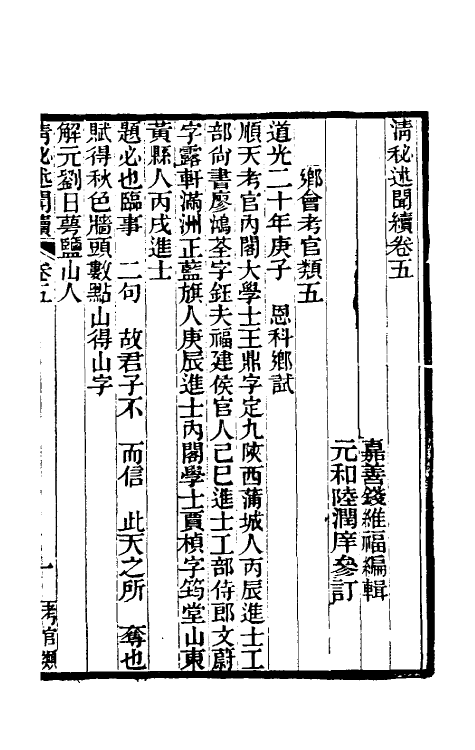 淸秘述聞續卷五
嘉善錢維福編輯
元和陸潤庠參訂
鄕會考官類五
道光二十年庚子　恩科鄕試
順天考官內閣大學士王鼎字定九陝西蒲城人丙辰進士工
部尙書廖鴻荃字鈺夫福建侯官人己巳進士工部侍郎文蔚
字露軒滿洲正藍旗人庚辰進士內閣學士賈楨字筠堂山東
黃縣人丙戌進士
題必也臨事　二句　故君子不　而信　此天之所　奪也
賦得秋色牆頭數點山得山字
解元劉日萼鹽山人
淸秘述聞續　卷五　一　考官類